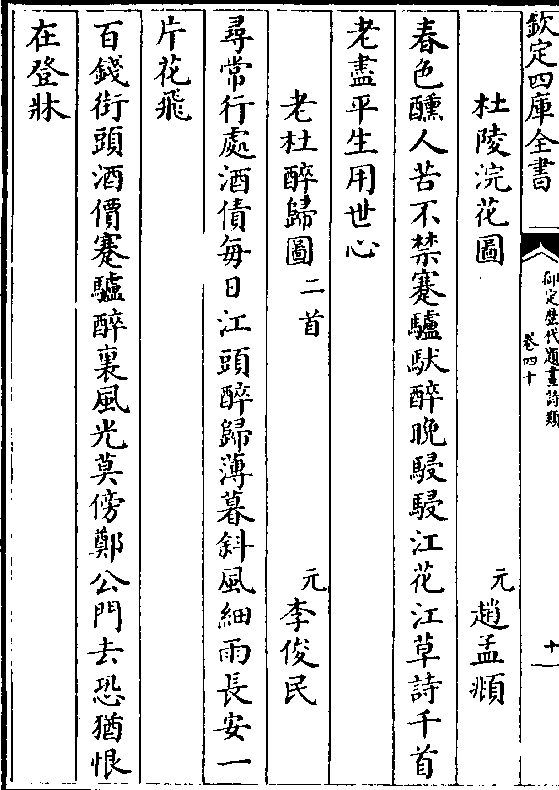 欽定四庫全書
御定歷代題畫詩類
卷四十
十一
杜陵浣花圖
元趙孟頫
春色醺人苦不禁蹇驢馱醉晚駸駸江花江草詩千首
老盡平生用世心
老杜醉歸圖二首
元李俊民
尋常行處酒債每日江頭醉歸薄暮斜風細雨長安一
片花飛
百錢街頭酒價蹇驢醉裏風光莫傍鄭公門去恐猶恨
在登牀